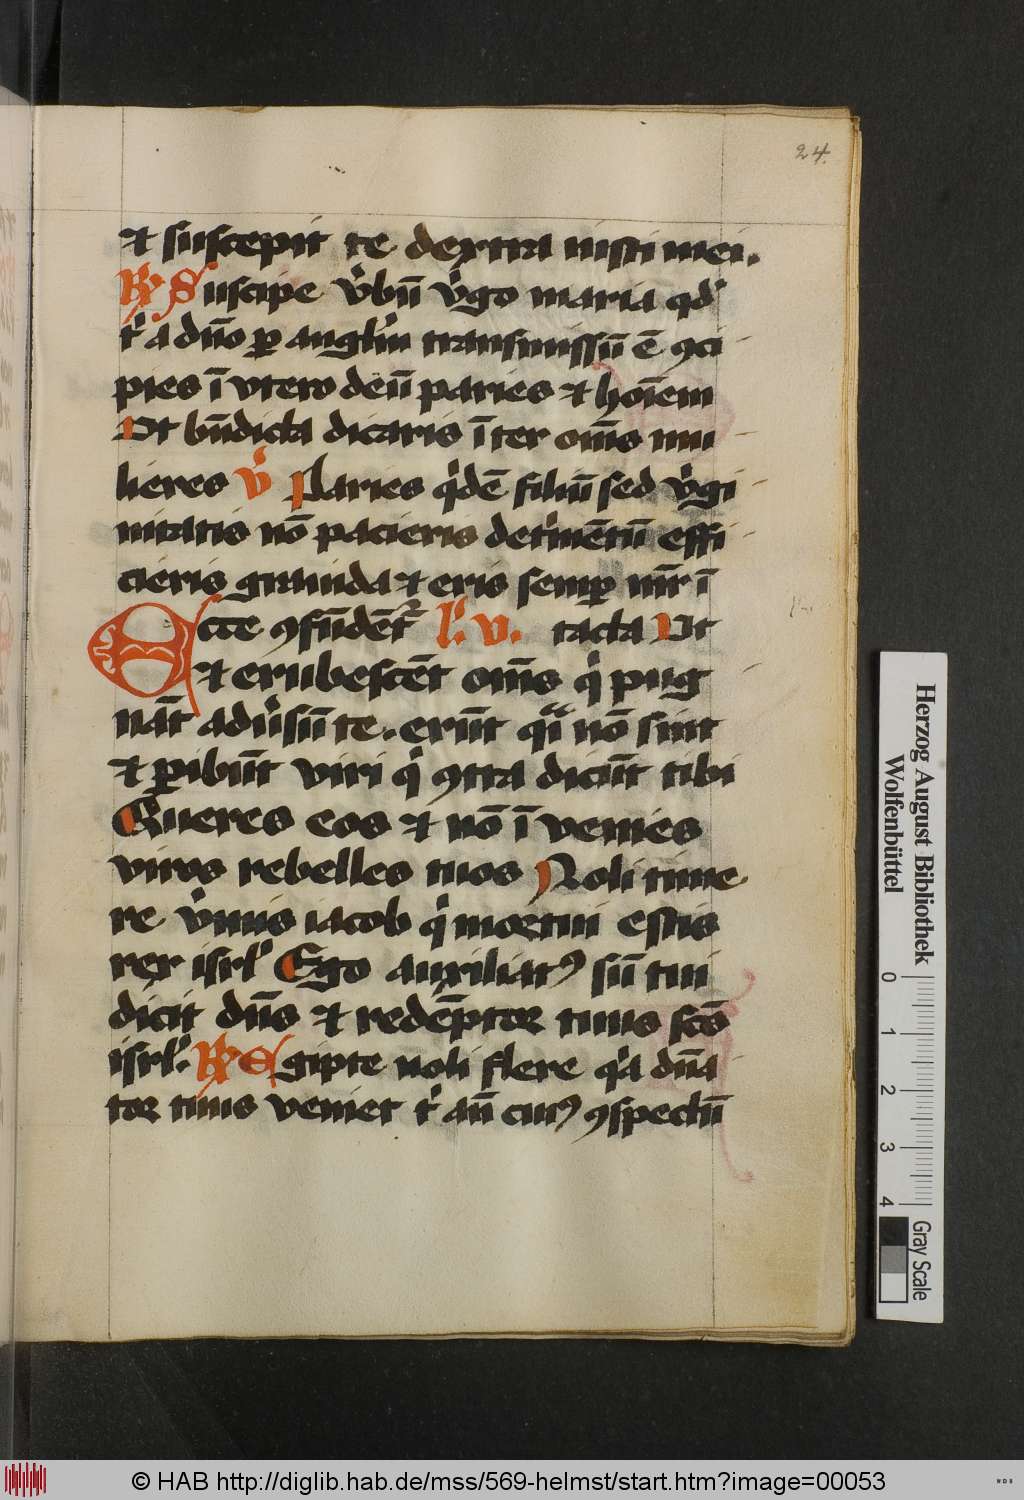 24.
et suscepit te dextra iusti mei.
R̸ Suscipe v̓bū v̓go maria qd̓
t̓ a dn̄o ꝑ angl̓m transmissū ē ꝯci
pies ī vtero deū paries et hoīem
Ut bn̄dicta dicaris ī ter om̄s mu
lieres v̓ Paries q̓dē filiū sed v̓gi
nitatis nō pacieris det̓mētū effi
cieris grauida et eris semꝑ mr̄ ī
Ecce ꝯfūdēt᷑ l̓. v. tacta Ut
et erubescēt om̄s q̓ pug
nāt adu̓sū te. erūt qͣi nō sint
et ꝑibūt viri q̓ ꝯtra dicūt tibi
Queres eos et nō ī venies
viros rebelles tuos Noli time
re v̓mis iacob q̓ mortui estis
rex isrl̓ Ego auxiliatꝰ sū tui
dicit dn̄s et redēptor tuus scs̄
isrl̓. R̸ Egipte noli flere q̓a dn̄a
tor tuus veniet t̓ an̄ cuiꝰ ꝯspectū
Herzog August Bibliothek
Wolfenbüttel
0 1 2 3 4
Gray Scale
© HAB http://diglib.hab.de/mss/569-helmst/start.htm?image=00053